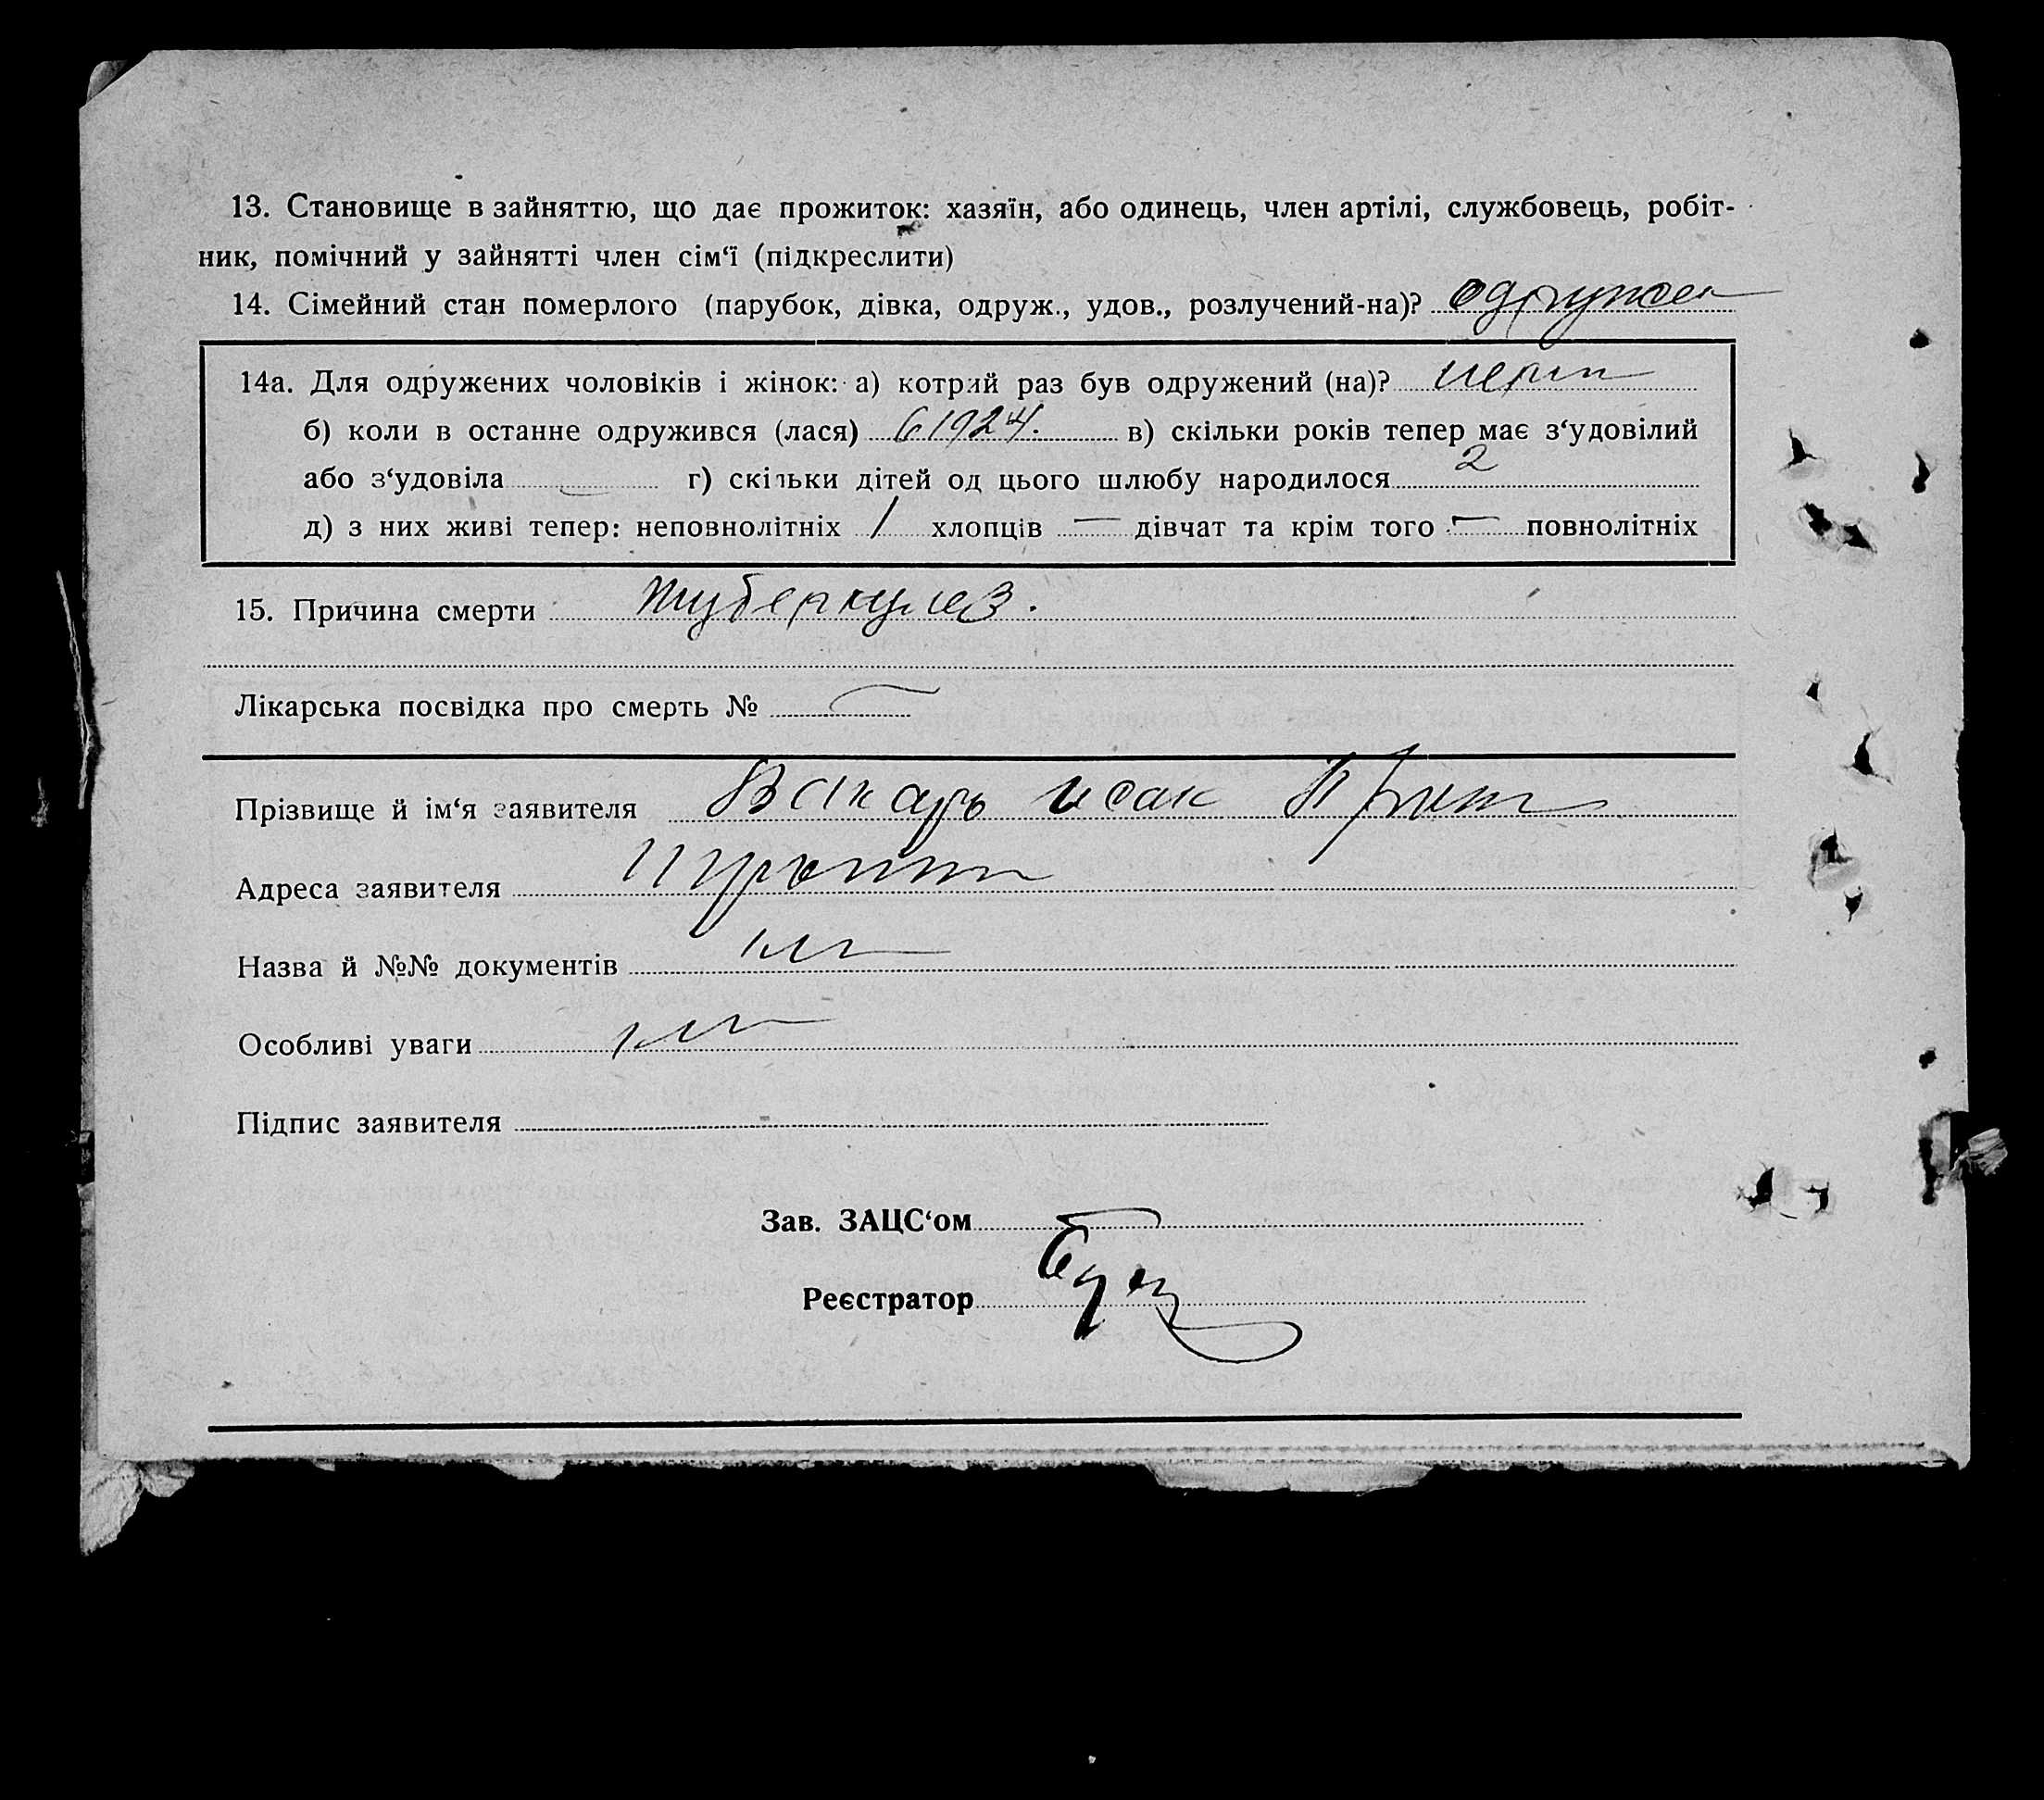 13. Становище в зайняттю, що дає прожиток: хазяїн, або одинець, член артілі, службовець, робіт-
ник, помічний у зайнятті член сім‘ї (підкреслити)
14. Сімейний стан померлого (парубок, дівка, одруж., удов., розлучений-на)? одружен
14а. Для одружених чоловіків і жінок: а) котрий раз був одружений (на)?
б) коли в останне одружився (лася) 61924. в) скільки років тепер має з‘удовілий
або з‘удовіла г) скільки дітей од цього шлюбу народилося 2
д) з них живі тепер: неповнолітніх 1 хлопців — дівчат та крім того — повнолітніх
15. Причина смерти туберкулез.
Лікарська посвідка про смерть № —
Прізвище й ім‘я заявителя Вакарь исак
Адреса заявителя
Назва й №№ документів
Особливі уваги
Підпис заявителя
Зав. ЗАЦС‘ом
Реєстратор